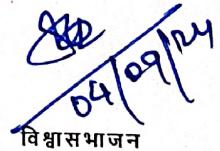 04/09/24
विश्वासभाजन